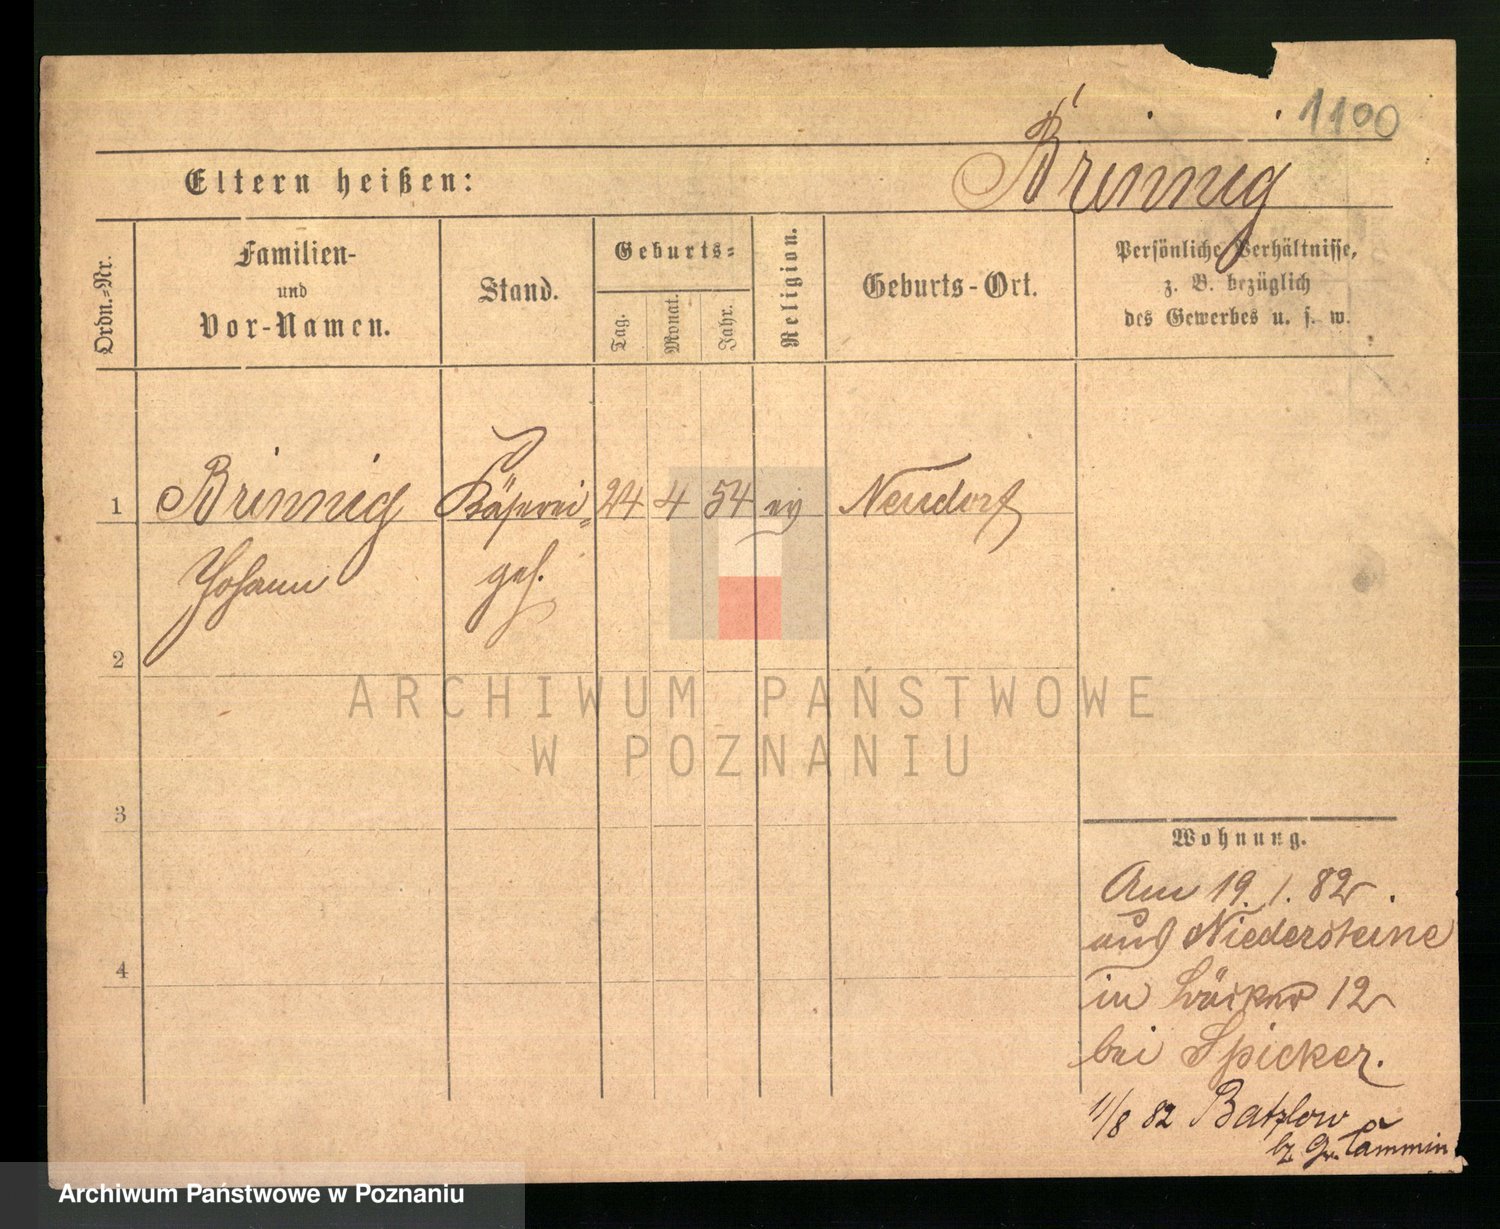 1100
Brinnig
Eltern heißen:
Ordn.-Nr.
Familien-
und
Vor-Namen.
Stand.
Geburts-
Tag.
Monat.
Jahr.
Religion.
Geburts-Ort.
Persönliche Verhältnisse,
z. B. bezüglich
des Gewerbes u. s. w.
1 Brinnig Käserei= 24 4 54 ev Neudorf
Johann geh.
2
3
4
ARCHIWUM PAŃSTWOWE
W POZNANIU
Wohnung.
Am 19. 1. 82.
aus Niedersteine
in 12
bei Spicker.
11/8 82 Batzlow
Gr.
Archiwum Państwowe w Poznaniu